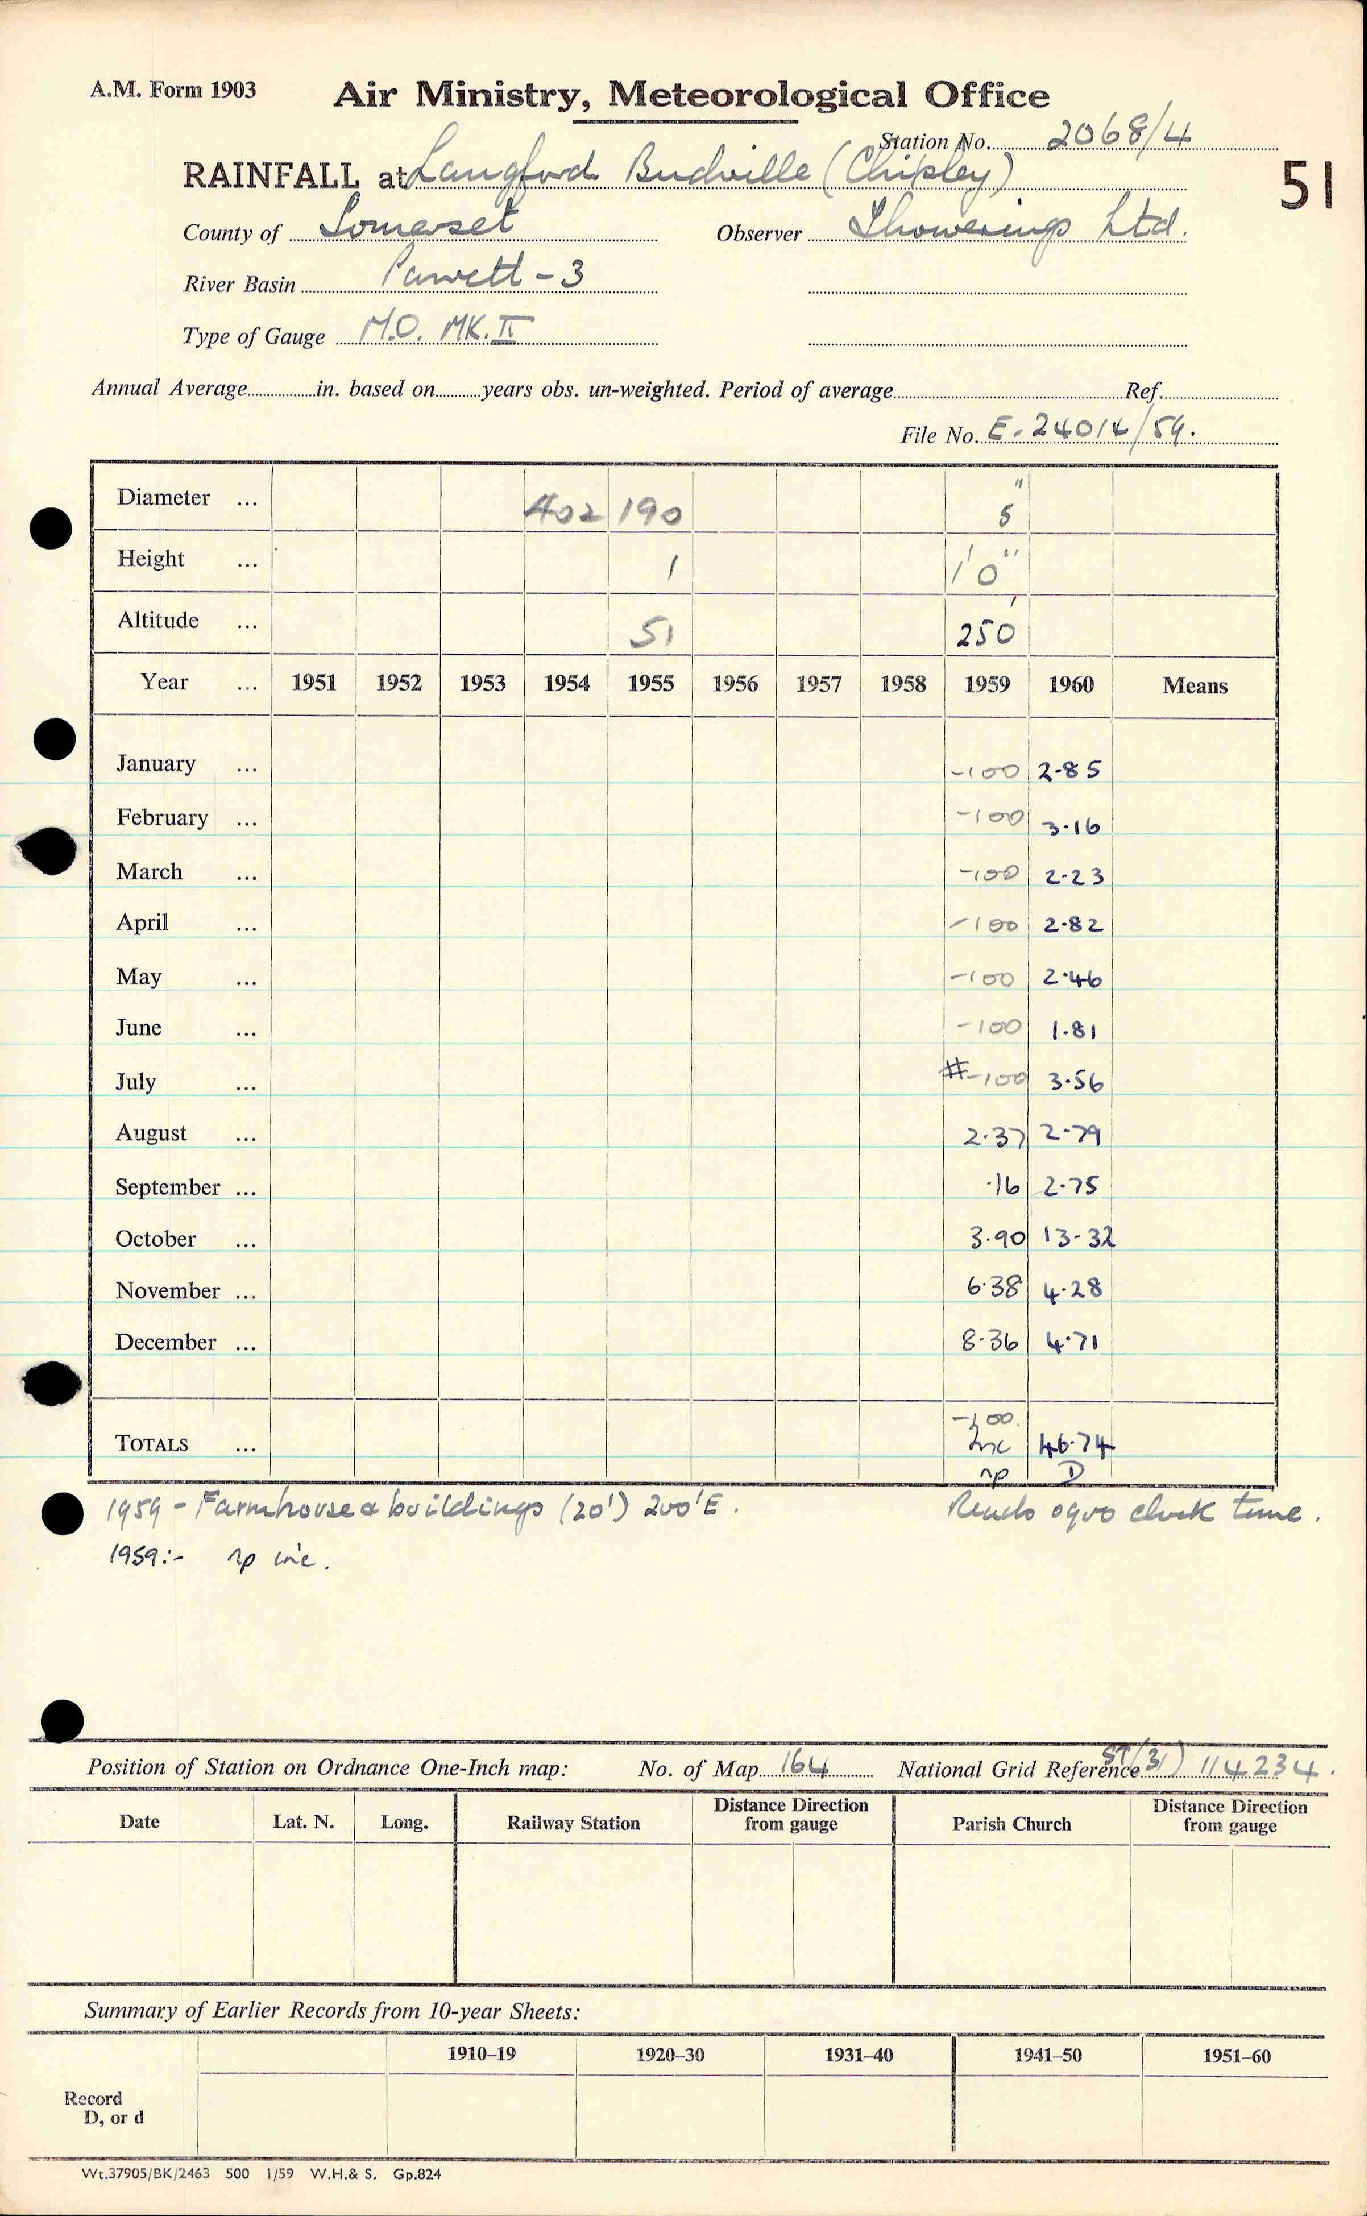 A.M. Form 1903 Air Ministry, Meteorological Office
Station No. 2068/4
RAINFALL at Langford Budville (Chipley) 51
County of Somerset Observer Showerings Ltd.
River Basin Parrett - 3
Type of Gauge M.O. MK. II
Annual Average in. based on years obs. un-weighted. Period of average Ref.
File No. E. 24014/59.
Diameter ... 402 190 5"
Height ... 1 1'0"
Altitude ... 51 250'
Year ... 1951 1952 1953 1954 1955 1956 1957 1958 1959 1960 Means
January ... -100 2.85
February ... -100 3.16
March ... -100 2.23
April ... -100 2.82
May ... -100 2.46
June ... -100 1.81
July ... # -100 3.56
August ... 2.37 2.79
September ... .16 2.75
October ... 3.90 13.32
November ... 6.38 4.28
December ... 8.36 4.71
-100
TOTALS ... Inc 46.74
np D
1959 - Farmhouse & buildings (20') 200'E. Reads 0900 clock time.
1959:- np inc.
Position of Station on Ordnance One-Inch map: No. of Map 164 National Grid Reference ST (31) 114234.
Date Lat. N. Long. Railway Station Distance Direction from gauge Parish Church Distance Direction from gauge
Summary of Earlier Records from 10-year Sheets:
1910–19 1920–30 1931–40 1941–50 1951–60
Record
D, or d
Wt.37905/BK/2463 500 1/59 W.H.& S. Gp.824